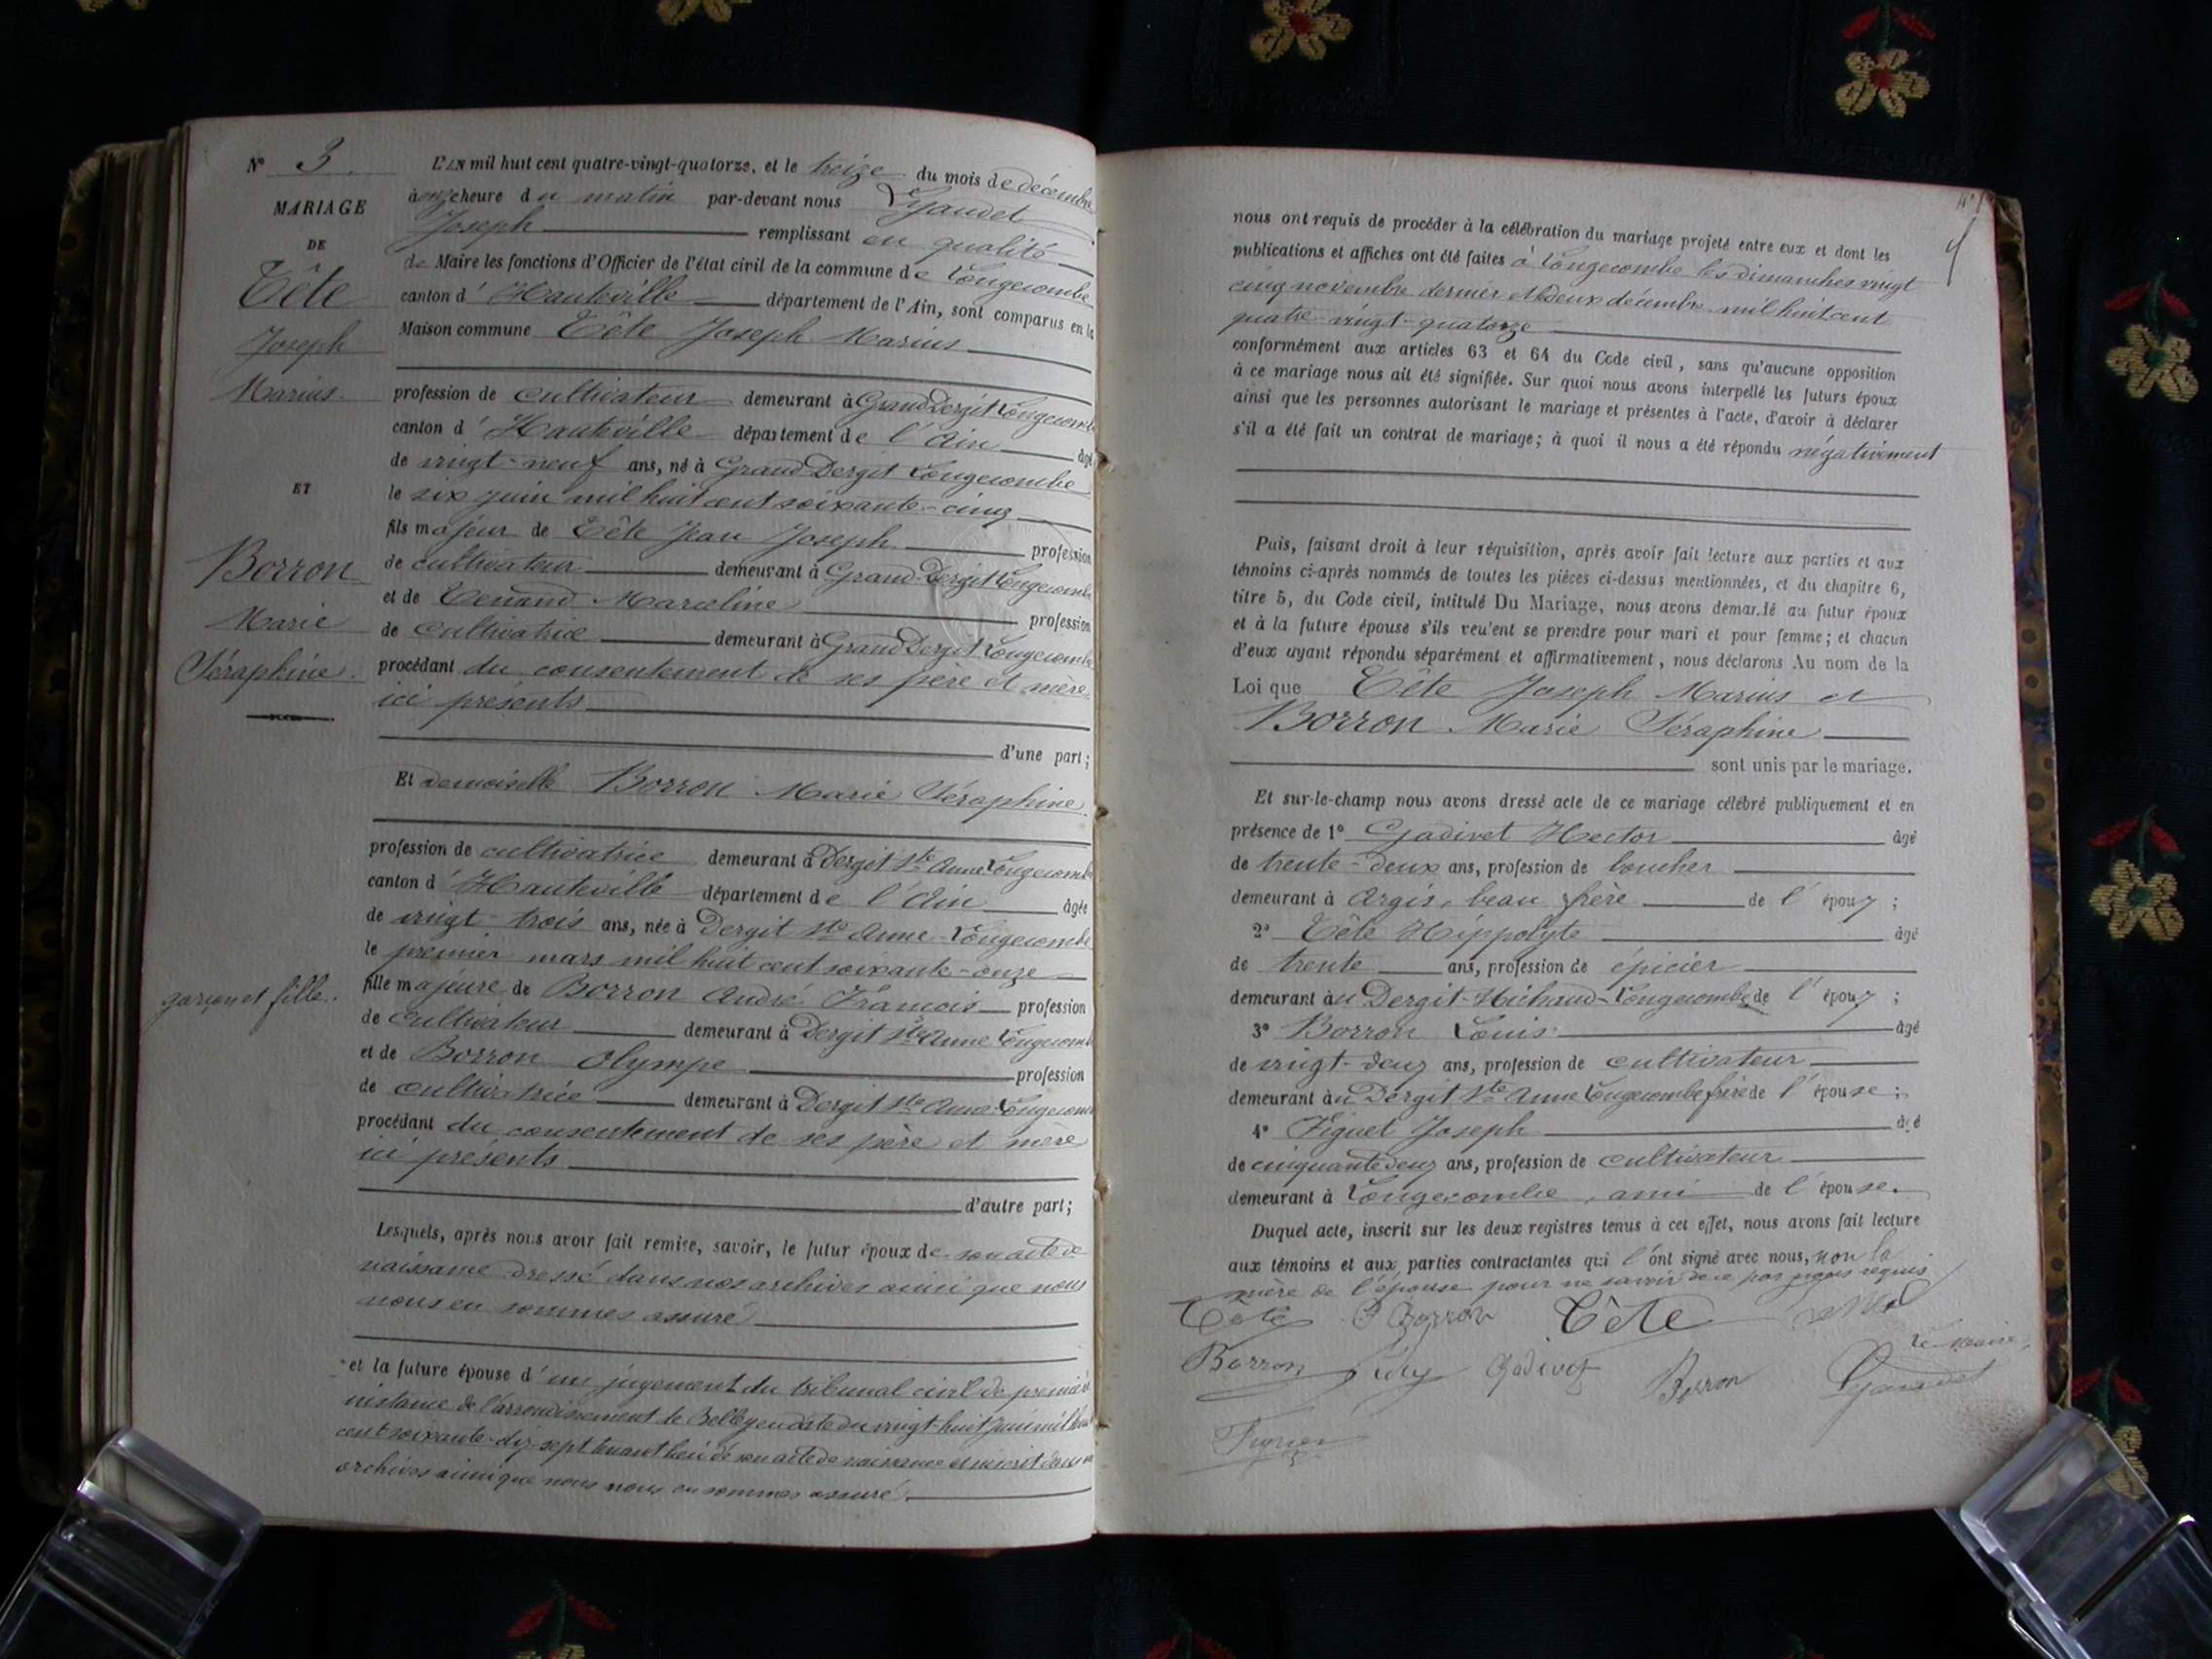 N° 3
MARIAGE
DE
Tête
Joseph
Marius
ET
Borron
Marie
Séraphine.
garçon et fille.
L'AN mil huit cent quatre-vingt-quatorze, et le treize du mois de décembre
à onze heure du matin par-devant nous Gaudet
Joseph remplissant en qualité
de Maire les fonctions d'Officier de l'état civil de la commune de Longecombe
canton d'Hauteville département de l'Ain, sont comparus en la
Maison commune Tête Joseph Marius
profession de cultivateur demeurant à Grand Dergit Longecombe
canton d'Hauteville département de l'Ain âgé
de vingt-neuf ans, né à Grand-Dergit Longecombe
le six juin mil huit cent soixante-cinq
fils majeur de Tête Jean Joseph profession
de cultivateur demeurant à Grand-Dergit Longecombe
et de Tenand Marceline profession
de cultivatrice demeurant à Grand Dergit Longecombe
procédant du consentement de ses père et mère
ici présents
d'une part;
Et demoiselle Borron Marie Séraphine
profession de cultivatrice demeurant à Dergit Ste Anne Longecombe
canton d'Hauteville département de l'Ain âgée
de vingt-trois ans, née à Dergit Ste Anne-Longecombe
le premier mars mil huit cent soixante-onze
fille majeure de Borron André François profession
de cultivateur demeurant à Dergit Ste Anne Longecomb
et de Borron Olympe profession
de cultivatrice demeurant à Dergit Ste Anne-Longecom
procédant du consentement de ses père et mère
ici présents
d'autre part;
Lesquels, après nous avoir fait remise, savoir, le futur époux de son acte de
naissance dressé dans nos archives ainsi que nous
nous en sommes assuré
et la future épouse d'un jugement du tribunal civil de première
instance de l'arrondissement de Belley en date du vingt-huit juin mil huit
cent soixante-dix-sept tenant lieu de son acte de naissance et inscrit dans nos
archives ainsi que nous nous en sommes assuré.
nous ont requis de procéder à la célébration du mariage projeté entre eux et dont les
publications et affiches ont été faites à Longecombe les dimanches vingt
cinq novembre dernier et deux décembre mil huit cent
quatre-vingt-quatorze
conformément aux articles 63 et 64 du Code civil, sans qu'aucune opposition
à ce mariage nous ait été signifiée. Sur quoi nous avons interpellé les futurs époux
ainsi que les personnes autorisant le mariage et présentes à l'acte, d'avoir à déclarer
s'il a été fait un contrat de mariage; à quoi il nous a été répondu négativement
Puis, faisant droit à leur réquisition, après avoir fait lecture aux parties et aux
témoins ci-après nommés de toutes les pièces ci-dessus mentionnées, et du chapitre 6,
titre 5, du Code civil, intitulé Du Mariage, nous avons demandé au futur époux
et à la future épouse s'ils veulent se prendre pour mari et pour femme; et chacun
d'eux ayant répondu séparément et affirmativement, nous déclarons Au nom de la
Loi que Tête Joseph Marius et
Borron Marie Séraphine
sont unis par le mariage.
Et sur-le-champ nous avons dressé acte de ce mariage célébré publiquement et en
présence de 1° Gadivet Hector âgé
de trente-deux ans, profession de boucher
demeurant à Argis, beau frère de l'époux;
2° Tête Hippolyte âgé
de trente ans, profession de épicier
demeurant au Dergit-Michaud-Longecombe de l'époux;
3° Borron Louis âgé
de vingt-deux ans, profession de cultivateur
demeurant au Dergit Ste Anne Longecombe frère de l'épouse;
4° Figuet Joseph âgé
de cinquante deux ans, profession de cultivateur
demeurant à Longecombe, ami de l'épouse.
Duquel acte, inscrit sur les deux registres tenus à cet effet, nous avons fait lecture
aux témoins et aux parties contractantes qui l'ont signé avec nous, non la
mère de l'épouse pour ne savoir de ce par nous requis
Tête Borron Tête
Borron Gadivet Borron Le Maire,
Gaudet